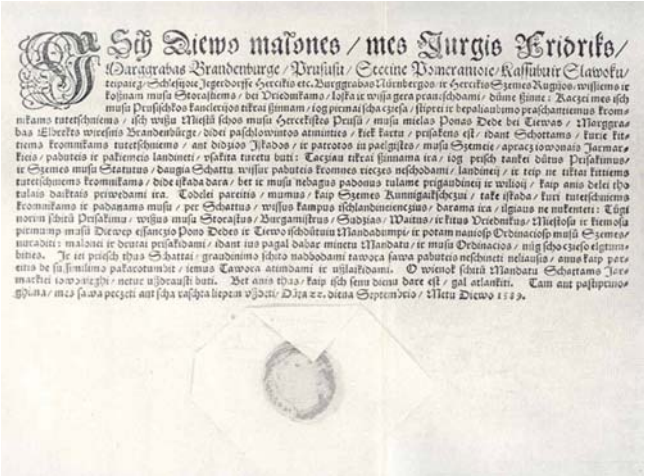 ISch Diewo malones / mes Jurgis Fridriks /
Marggrabas Brandenburge / Prususu / Stetine Pomeranioie / Kassubu ir Slawoku /
Schlesijoie Jegerdorffe Hercikis etc. Burggrabas Nürnbergos / ir Hercikis Szemes Rugijos / wissiems ir
kosznam musu Storasthems / bei Vriednikams / loska ir wissa gera pranischdami / důme szinne : Kaczei mes isch
musu Prusischkos kancelerijos tikrai szinnam / iog pirmai scha czesa / stiprei ir bepaliaubimo praschantiemus krom-
nikams tutetschniems / isch wissu Miestu schos musu Hercikistes Prusu / musu mielas Ponas Dede bei Tiewas / Marggra-
bas Elbrekts wiresnis Brandenburge / didei paschlowintos atminties / kiek kartu / prisakens est / idant Schottams / kurie kit-
tiems kromnikams tutetschniems / ant didzios Iskados / ir patrotos in paelgistes / musu Szemeie / apracz iowonais Jarmar-
kieis / pabuteis ir pakiemeis landineti / vszakita turetu buti : Tacziau tikrai szinnama ira / iog prisch tankei důtus Prisakimus /
ir Szemes musu Statutus / daugia Schattu wissur pabuteis kromnes rieczes neschodami / landineij / ir teip ne tiktai kittiems
tutetschniems kromnikams / dide iskada dara / bet ir musu nebagus padonus tulame prigaudineij ir wilioij / kaip anis delei tho
tulais daiktais priwedami ira. Todelei pareitis / mumus / kaip Szemes Kunnigaikschczui / take iskada / kuri tutetschniems
kromnikams ir padanams musu / per Schattus / wissus kampus ischlandineienczius / darama ira / ilgiaus ne nukenteti : Tůgi
norim schitů Prisakimu / wissus musu Storastus / Burgamistrus / Sudzias / Waitus / ir kitus Vriednikus / Miestosa ir kiemosa
pirmamp musů Diewep essanczio Pono Dedes ir Tiewo ischdůtuiu Mandadumpi / ir potam nauiosp Ordinaciosp musů Szemes /
nuraditi : malonei ir drutai prisakidami / idant ius pagal dabar minetu Mandatu / ir musu Ordinacios / nůg scho czieso elgtum-
bites. Je iei priesch thus Schattai / graudinimo schito nadbodami tawora sawa pabuteis neschineti neliausis / anus kaip par-
eitis be susimilimo pakarotumbit / iemus Tawora atimdami ir ussilaikidami. O wienok schitů Mandatu Schattams Jar-
markiei iowonieghi / netur ussdrausti buti. Bet anis thas / kaip isch senu dienu dare est / gal atlankiti. Tam ant pastiprin-
ghima / mes sawa peczeti ant scha raschta liepem usszdeti / Data 22. diena Septembrio / Metu Diewo 1589.